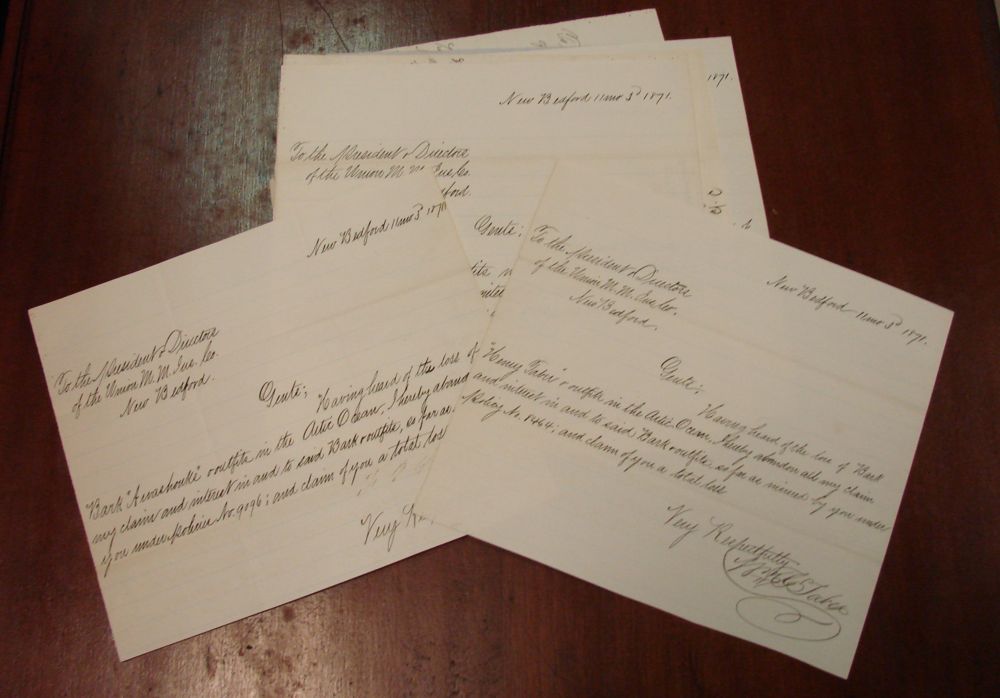 1871.
New Bedford 11mo 3d 1871.
To the President & Directors
of the Union M.
ford.
Gents;
New Bedford 11mo 3d 1871
To the President & Directors
of the Union M. M. Ins. Co.
New Bedford.
Gents;
Having heard of the loss of
Bark "Awashonks" & outfits in the Artic Ocean, I hereby aband
my claim and interest in and to said Bark & outfits, so far as
you under Policie No. 9096; and claim of you a total los
Very
New Bedford 11mo 3d 1871.
To the President & Directors
of the Union M. M. Ins. Co.
New Bedford.
Gents;
Having heard of the loss of Bark
"Henry Taber" & outfits in the Artic Ocean, I hereby abandon all my claim
and interest in and to said Bark & outfits, so far as insured by you under
Policy No. 8464; and claim of you a total loss
Very Respectfully
Taber